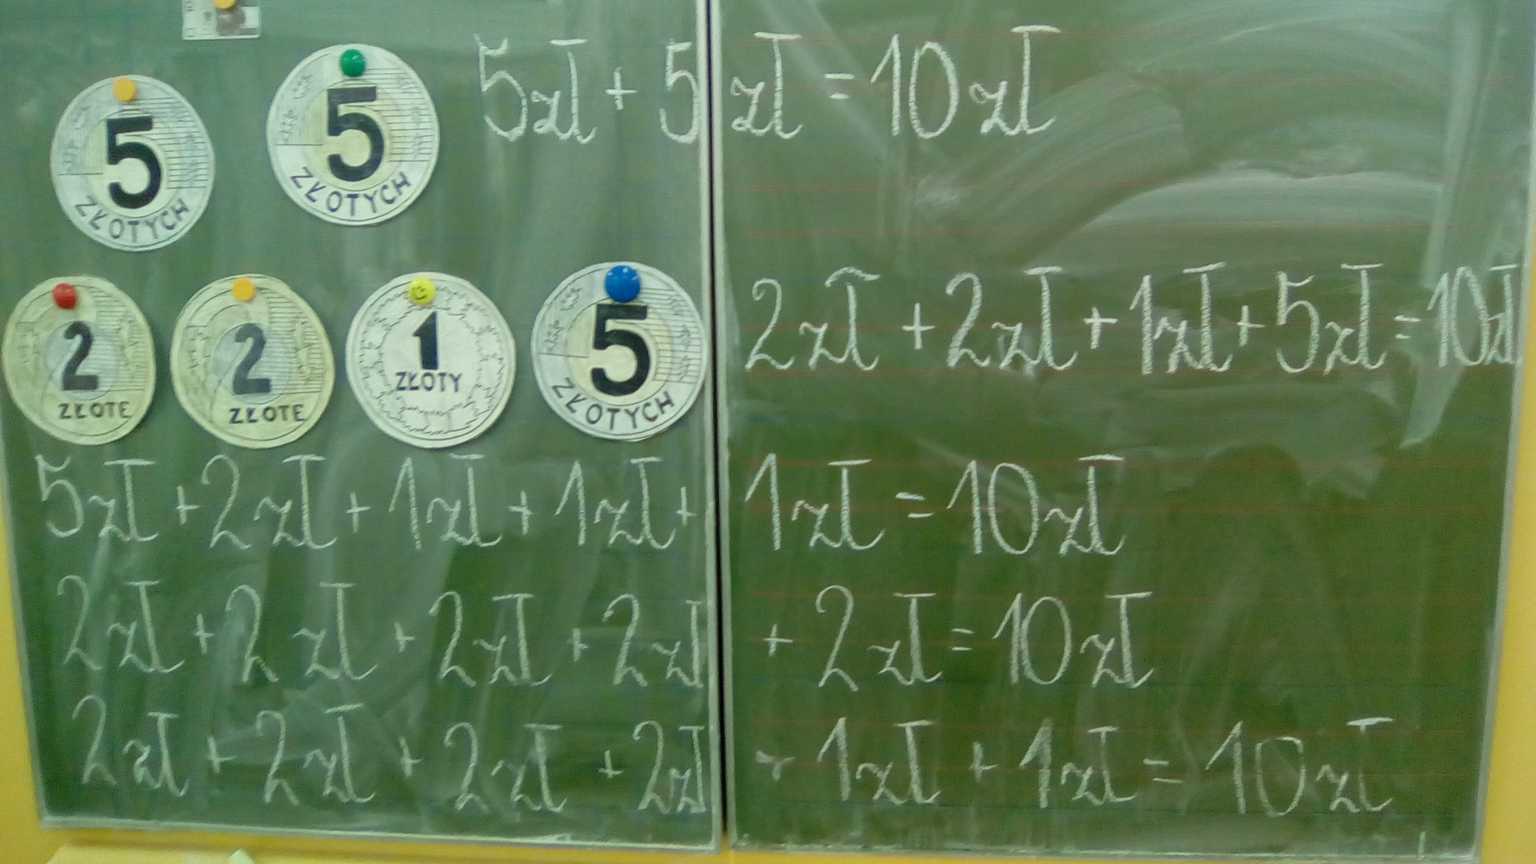 5 ZŁOTYCH
5 ZŁOTYCH
5zł + 5zł = 10zł
2 ZŁOTE
2 ZŁOTE
1 ZŁOTY
5 ZŁOTYCH
2zł + 2zł + 1zł + 5zł = 10zł
5zł + 2zł + 1zł + 1zł + 1zł = 10zł
2zł + 2zł + 2zł + 2zł + 2zł = 10zł
2zł + 2zł + 2zł + 2zł + 1zł + 1zł = 10zł